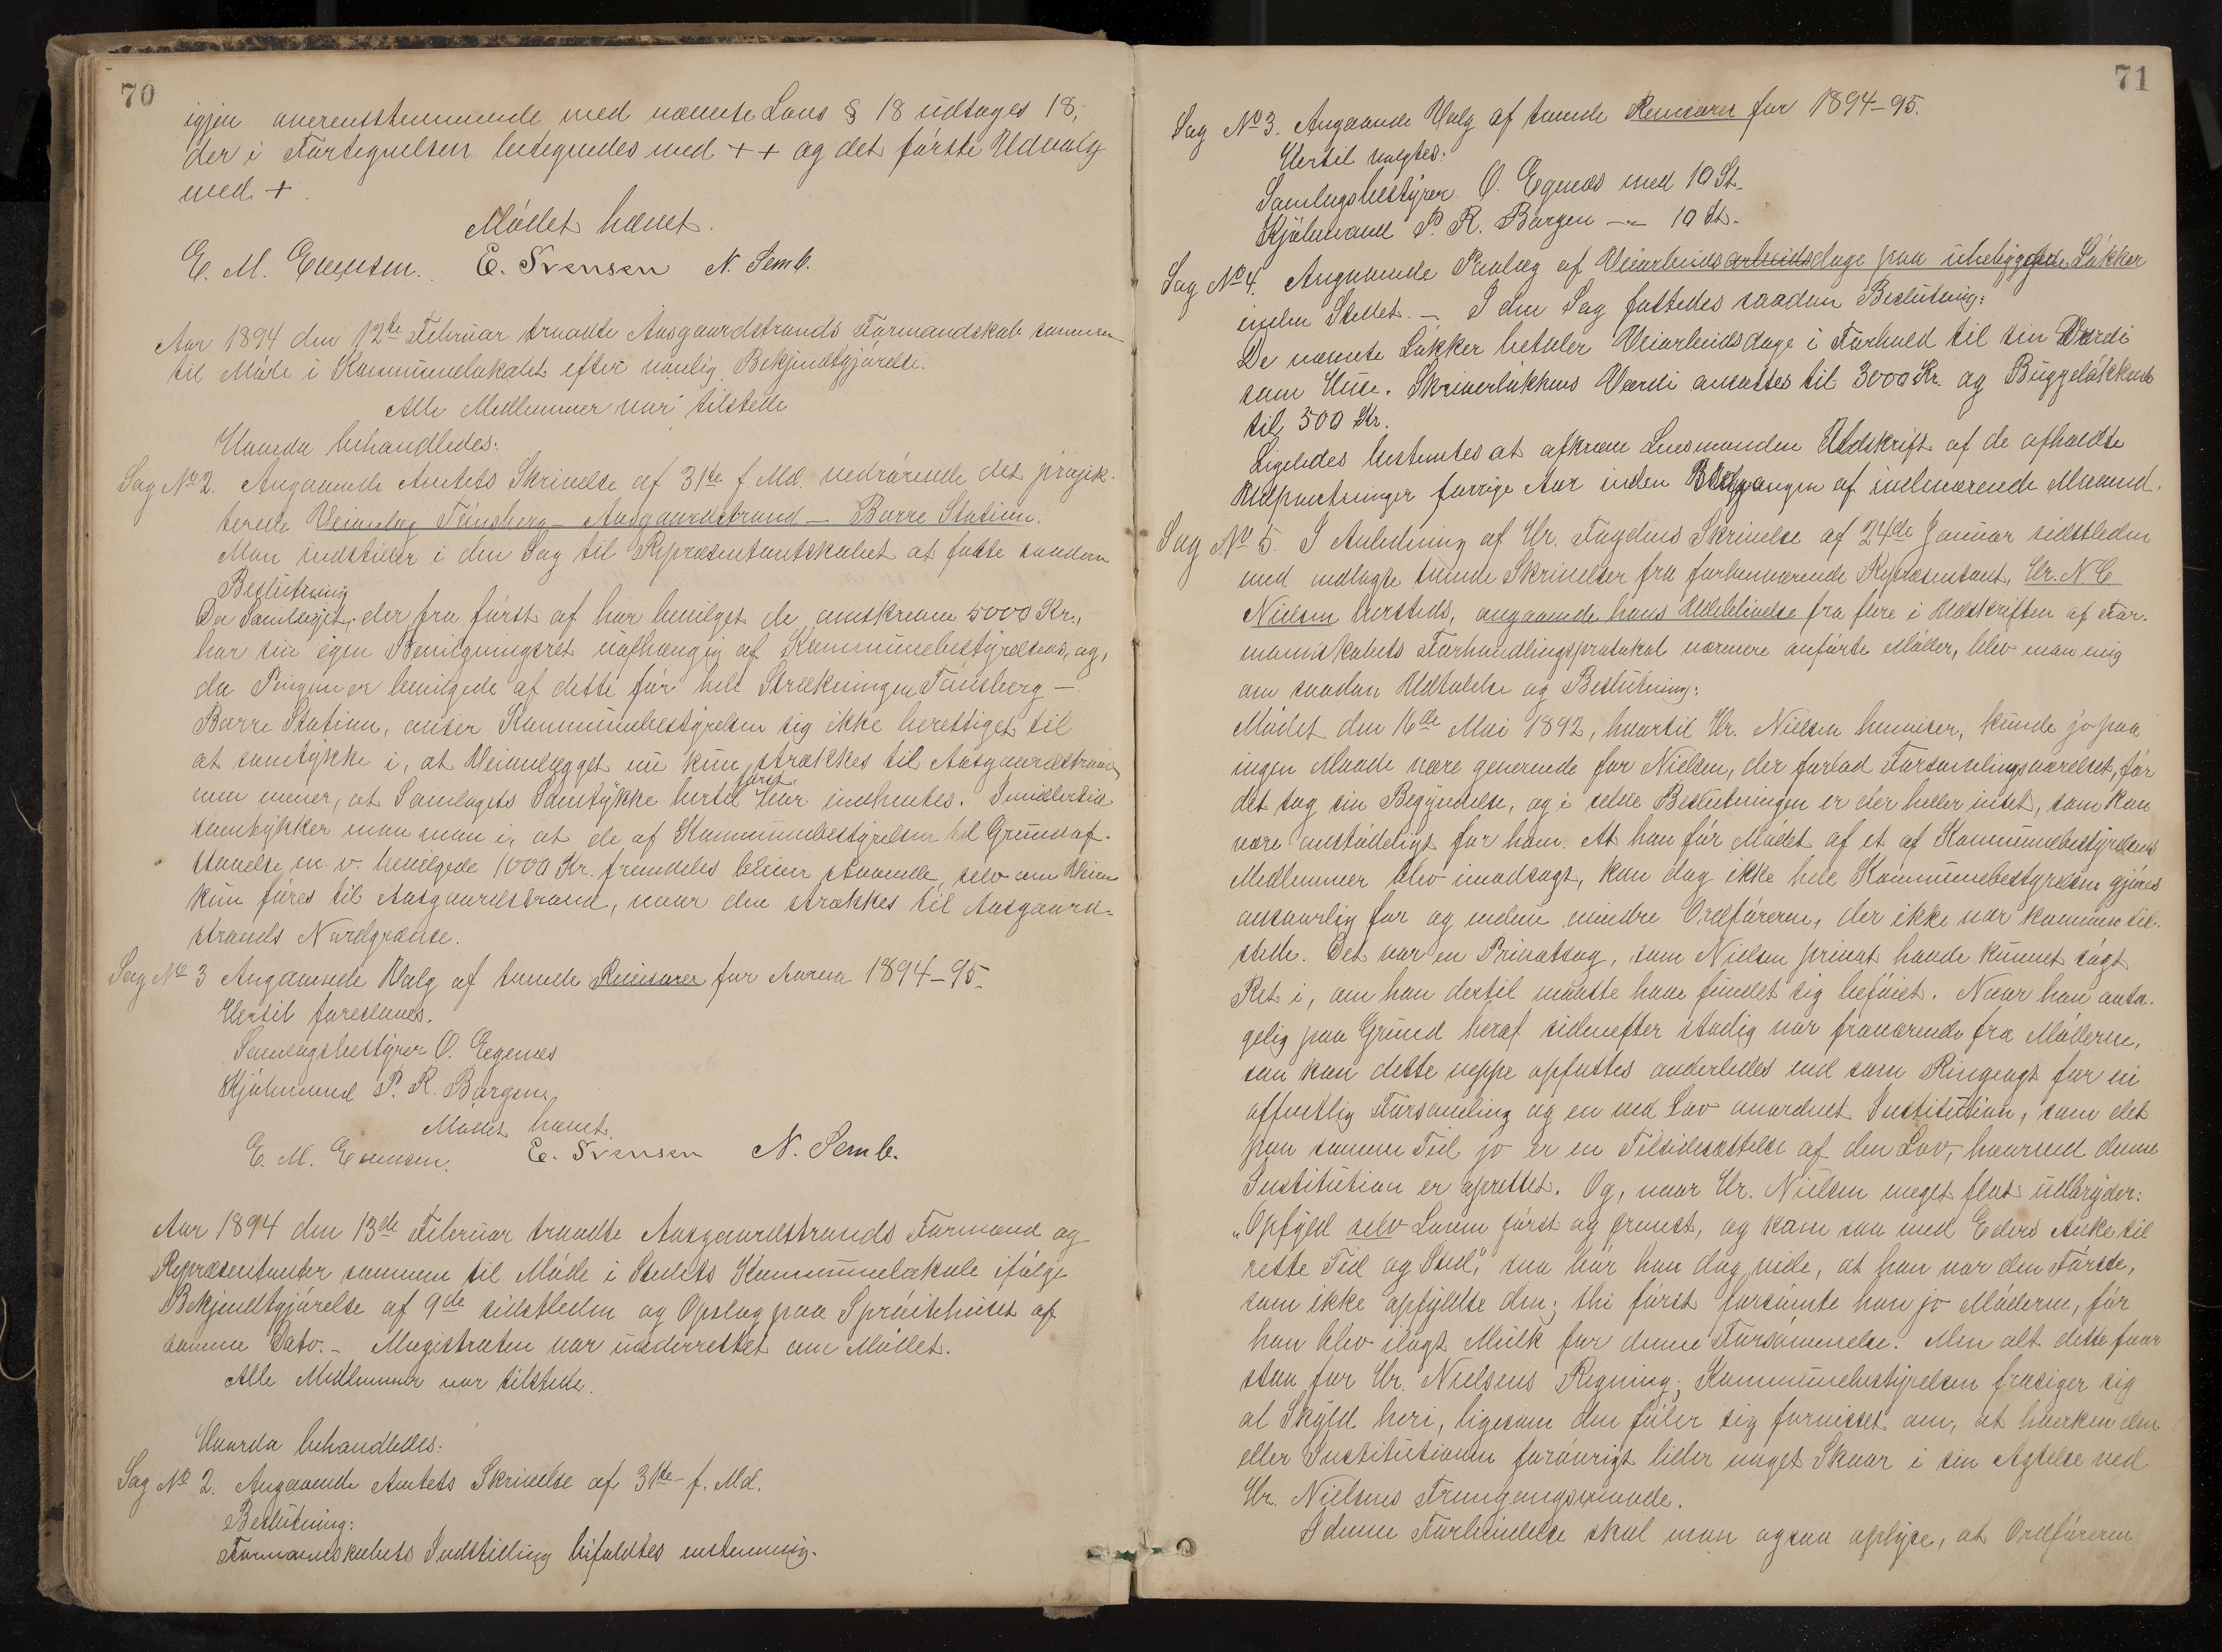 70
igjen overensstemmende med nævnte Lovs § 18 udtoges 18,
der i Fortegnelsen betegnedes med ++ og det første Udvalg
med +.
Mødet hævet.
E. M. Evensen. E. Svensen N. Semb.
Aar 1894 den 12te Februar traadte Aasgaardstrands Formandskab sammen
til Møde i Kommunelokalet efter vanlig Bekjendtgjørelse.
Alle Medlemmer var tilstede
Hvorda behandledes:
Sag No 2. Angaaende Amtets Skrivelse af 31te f. Md. vedrørende det projek-
terede Veianlæg Tønsberg – Aasgaardstrand – Borre Station.
Man indstiller i den Sag til Repræsentantskabet at fatte saadan
Beslutning
Da Samlaget, der fra først af har bevilget de omskrevne 5000 Kr.,
har sin egen Bevilgningsret uafhængig af Kommunebestyrelsens, og,
da Pengene er bevilgede af dette for hele Strækningen Tønsberg –
Borre Station, anser Kommunebestyrelsen sig ikke berettiget til
at samtykke i, at Veianlægget nu kun strækkes til Aasgaardstrand,
men mener, at Samlagets Samtykke hertil først bør indhentes. Imidlertid
samtykker man man i, at de af Kommunebestyrelsen til Grundaf-
staaelse m. v. bevilgede 1000 Kr. fremdeles bliver staaende, selv om Veien
kun føres til Aasgaardstrand, naar den strækkes til Aasgaard-
strands Nordgrændse.
Sag No 3 Angaaende Valg af tvende Revisorer for Aarene 1894–95.
Hertil foresloges.
Samlagsbestyrer O. Egenæs
Kjøbmand P. R. Borgen
Mødet hævet.
E. M. Evensen. E. Svensen N. Semb.
Aar 1894 den 13de Februar traadte Aasgaardstrands Formænd og
Repræsentanter sammen til Møde i Stedets Kommunelokale ifølge
Bekjendtgjørelse af 9de sidstleden og Opslag paa Sprøitehuset af
samme Dato. – Magistraten var underrettet om Mødet.
Alle Medlemmer var tilstede.
Hvorda behandledes:
Sag No 2. Angaaende Amtets Skrivelse af 31te f. Md.
Beslutning:
Formandskabets Indstilling bifaldtes enstemmig.
71
Sag No 3. Angaaende Valg af tvende Revisorer for 1894–95.
Hertil valgtes:
Samlagsbestyrer O. Egenæs med 10 St.
Kjøbmand P. R. Borgen –„– 10 St.
Sag No 4. Angaaende Paalæg af Veiarbeids arbeidsdage paa ubebyggede Løkker
inden Stedet. – I den Sag fattedes saadan Beslutning:
De nævnte Løkker betaler Veiarbeidsdage i Forhold til sin Værdi
som Huse. Skriverløkkens Værdi ansættes til 3000 Kr. og Byggeløkkens
til 500 Kr.
Ligeledes bestemtes at afkræve Lensmanden Udskrift af de afholdte
Udpantninger forrige Aar inden Udgangen af indeværende Maaned.
Sag No 5. I Anledning af Hr. Fogdens Skrivelse af 24de Januar sidstleden
med vedlagte tvende Skrivelser fra forhenværende Repræsentant, Hr. N C
Nielsen hersteds, angaaende hans Udeblivelse fra flere i Udskriften af For-
mandskabets Forhandlingsprotokol nærmere anførte Møder, blev man enig
om saadan Udtalelse og Beslutning:
Mødet den 16de Mai 1892, hvortil Hr. Nielsen henviser, kunde jo paa
ingen Maade være generende for Nielsen, der forlod Forsamlingsværelset, før
det tog sin Begyndelse, og i selve Beslutningen er der heller intet, som kan
være anstødeligt for ham. At han før Mødet af et af Kommunebestyrelsens
Medlemmer blev imodsagt, kan dog ikke hele Kommunebestyrelsen gjøres
ansvarlig for og endnu mindre Ordføreren, der ikke var kommen til-
stede. Det var en Privatsag, som Nielsen privat havde kunnet søgt
Ret i, om han dertil maatte have fundet sig beføiet. Naar han anta-
gelig paa Grund heraf sidenefter stadig var fraværende fra Møderne,
saa kan dette neppe opfattes anderledes end som Ringeagt for en
offentlig Forsamling og en ved Lov anordnet Institution, som det
paa samme Tid jo er en Tilsidesættelse af den Lov, hvorved denne
Institution er oprettet. Og, naar Hr. Nielsen meget flot udbryder:
„Opfyld selv Loven først og fremst, og kom saa med Eders Anke til
rette Tid og Sted", saa bør han dog vide, at han var den Første,
som ikke opfyldte den; thi først forsømte han jo Møderne, før
han blev ilagt Mulk for denne Forsømmelse. Men alt dette faar
staa for Hr. Nielsens Regning; Kommunebestyrelsen frasiger sig
al Skyld heri, ligesom den føler sig forvisset om, at hverken den
eller Institutionen forøvrigt lider noget Skaar i sin Agtelse ved
Hr. Nielsens Fremgangsmaade.
I denne Forbindelse skal man ogsaa oplyse, at Ordføreren